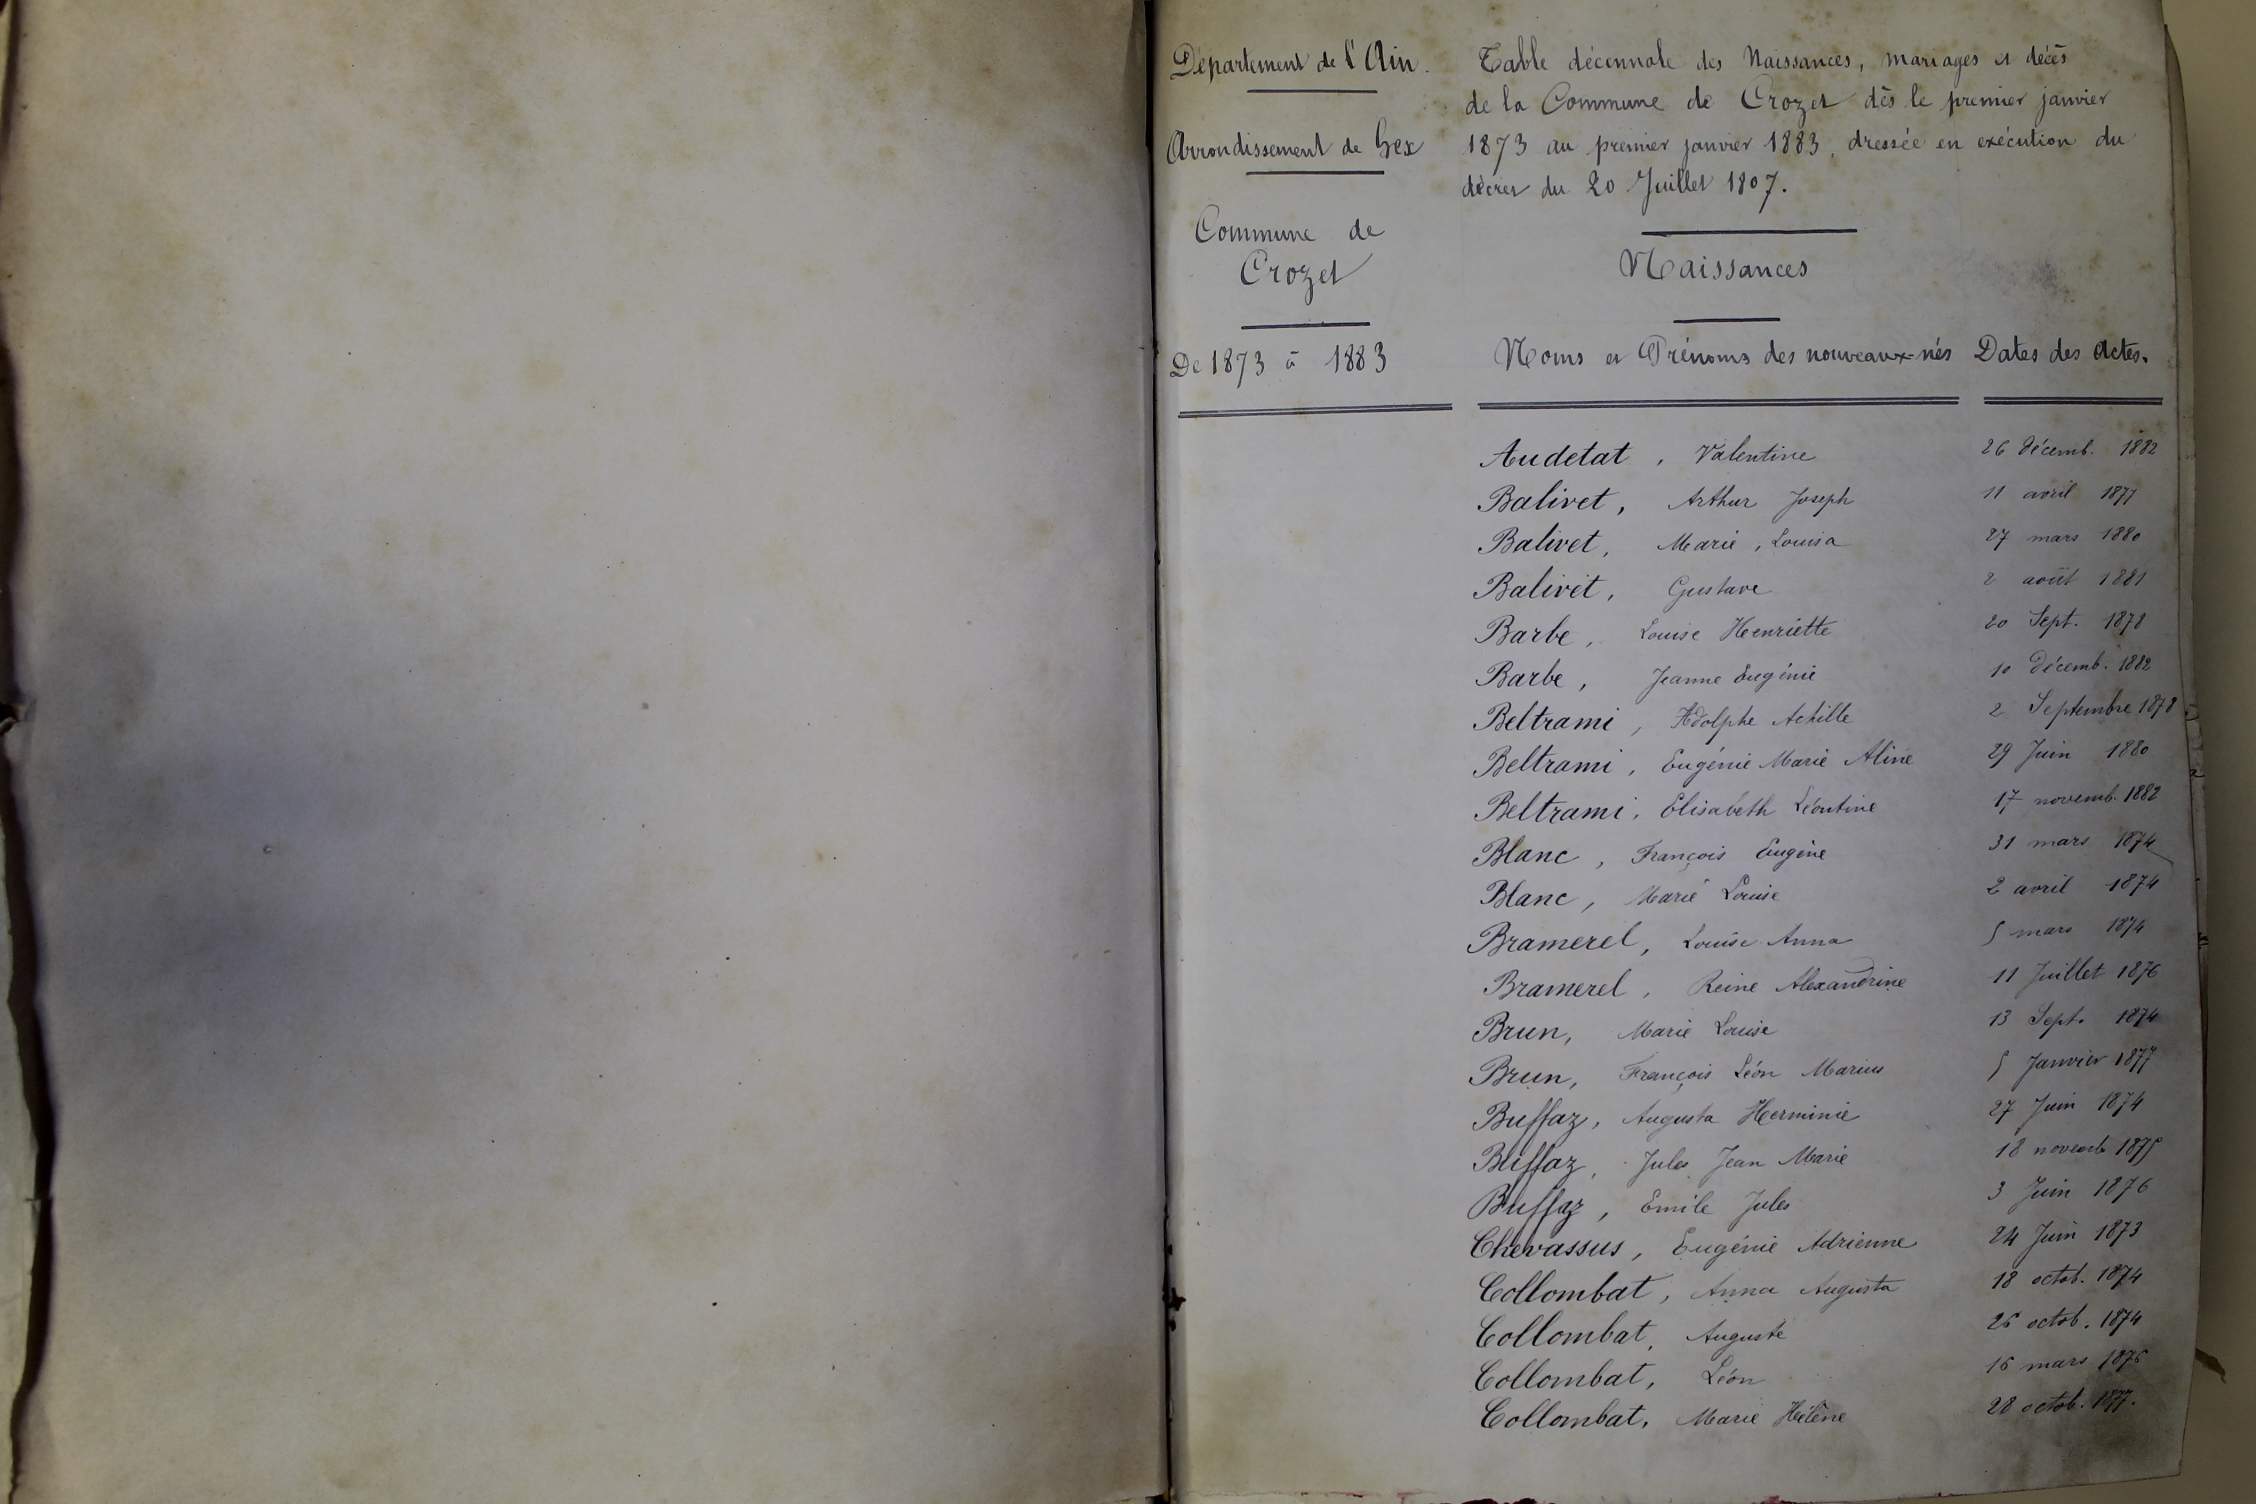 Département de l'Ain.
Arrondissement de Gex
Commune de
Crozet
De 1873 à 1883
Table décennale des Naissances, mariages et décès
de la Commune de Crozet dès le premier janvier
1873 au premier janvier 1883, dressée en exécution du
décret du 20 Juillet 1807.
Naissances
Noms et Prénoms des nouveaux-nés Dates des Actes.
Audetat, Valentine 26 Décemb. 1882
Balivet, Arthur Joseph 11 avril 1877
Balivet, Marie, Louisa 27 mars 1880
Balivet, Gustave 2 août 1881
Barbe, Louise Henriette 20 Sept. 1878
Barbe, Jeanne Eugénie 10 Décemb. 1882
Beltrami, Adolphe Achille 2 Septembre 1878
Beltrami, Eugénie Marie Aline 29 Juin 1880
Beltrami, Elisabeth Léontine 17 novemb. 1882
Blanc, François Eugène 31 mars 1874
Blanc, Marie Louise 2 avril 1874
Bramerel, Louise Anna 5 mars 1874
Bramerel, Reine Alexandrine 11 Juillet 1876
Brun, Marie Louise 13 Sept. 1874
Brun, François Léon Marius 5 Janvier 1877
Buffaz, Augusta Herminie 27 Juin 1874
Buffaz, Jules Jean Marie 18 novemb 1875
Buffaz, Emile Jules 3 Juin 1876
Chevassus, Eugénie Adrienne 24 Juin 1873
Collombat, Anna Augusta 18 octob. 1874
Collombat, Auguste octob. 1874
Collombat, Léon 16 mars 1876
Collombat, Marie Hélène 28 octob. 1877.